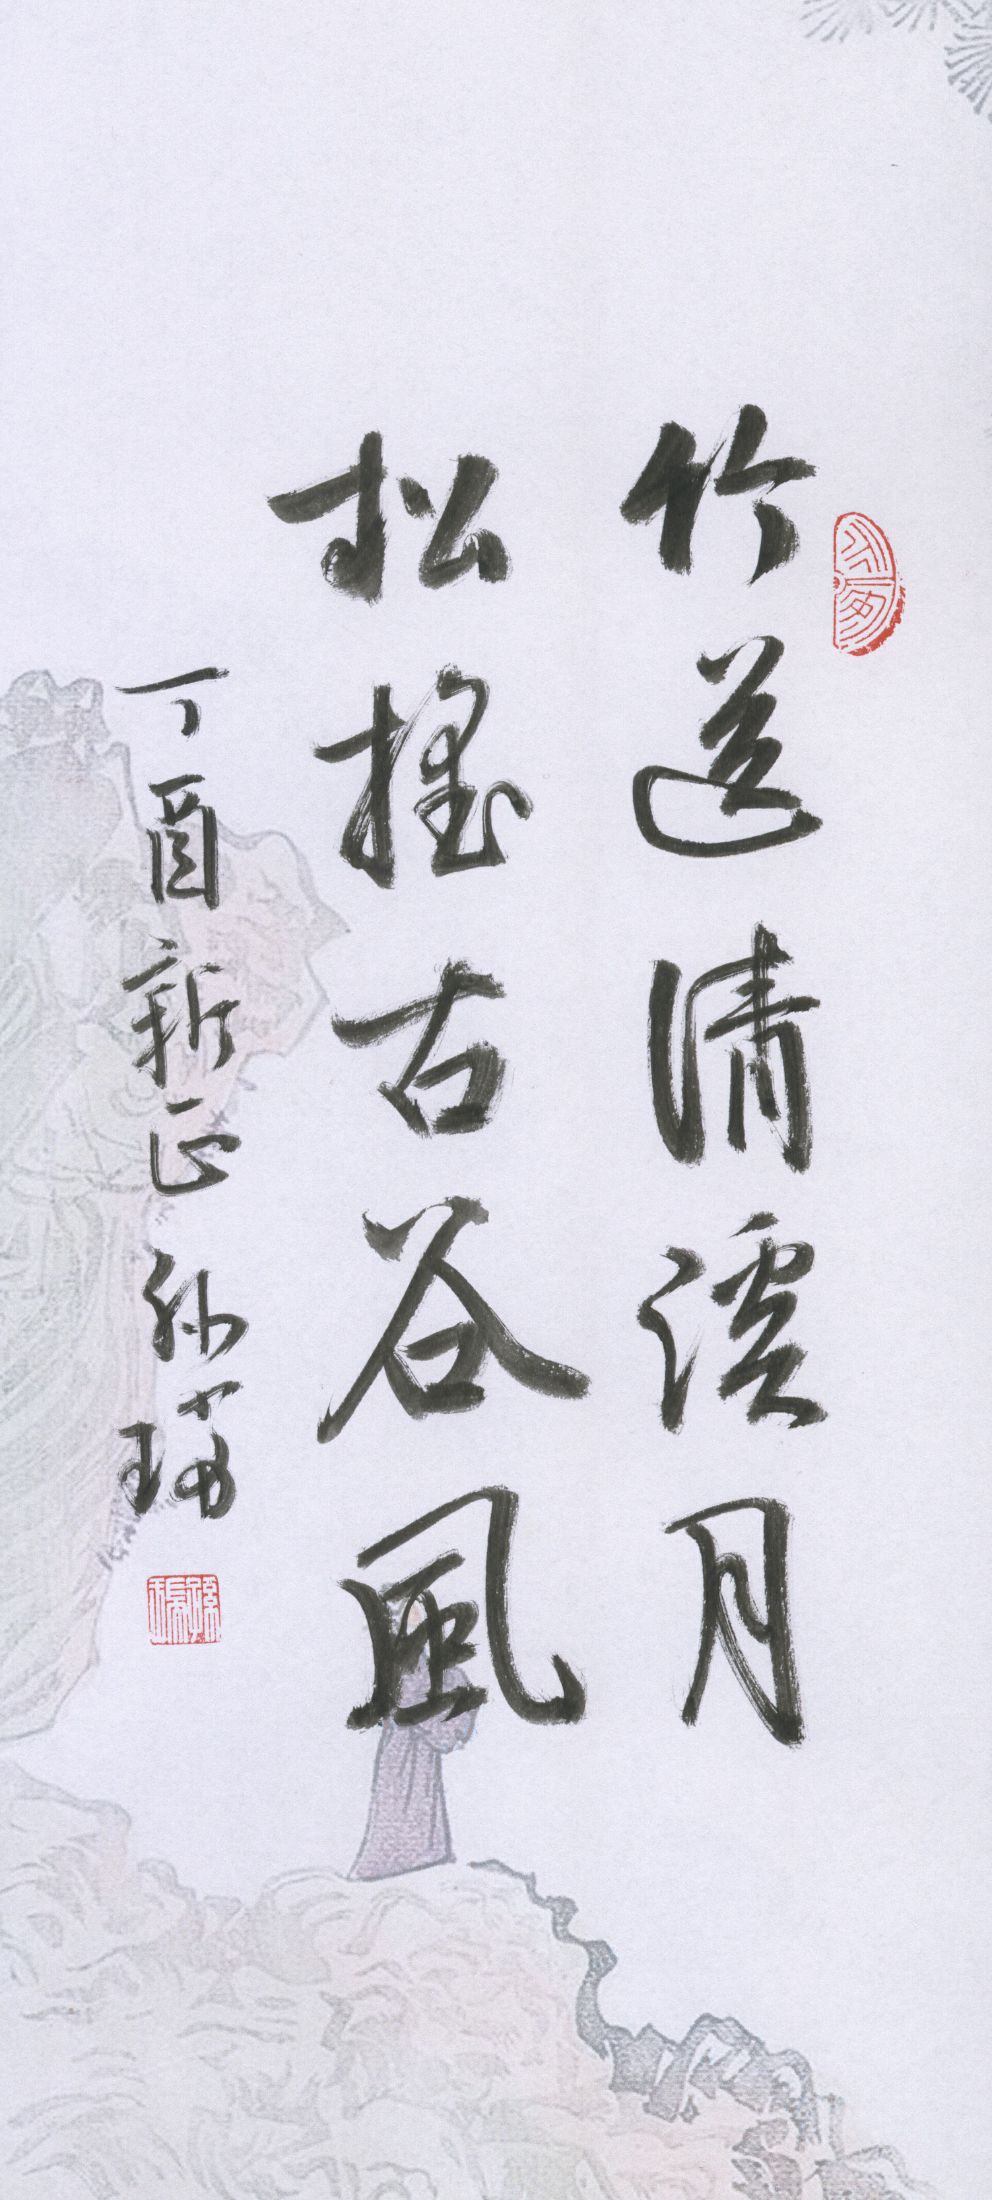 竹送清溪月
松搖古谷風
丁酉新正孙瑞